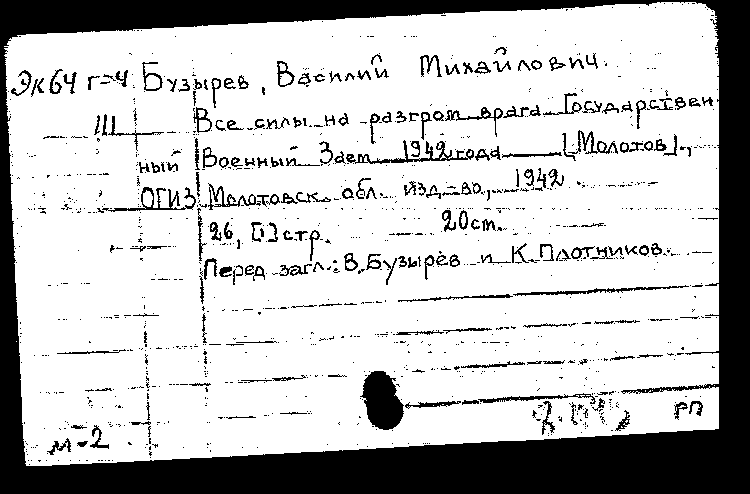 Эк64 г=4 Бузырев, Василий Михайлович.
III Все силы на разгром врага Государствен
ный Военный Заем 1942 года [Молотов].,
ОГИЗ Молотовск. обл. изд-во, 1942.
26, [1] стр. 20 ст.
Перед загл.: В. Бузырев и К. Плотников.
РП
м-2